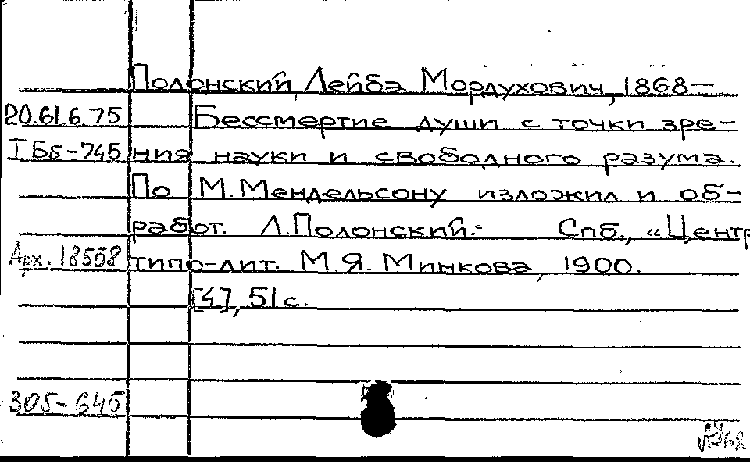 Полонский, Лейба Мордухович, 1868–
20.61.6.75 Бессмертие души с точки зре-
I Бб-745 ния науки и свободного разума.
По М.Мендельсону изложил и об-
работ. Л.Полонский.- Спб., «Центр
Арх. 18558 типо-лит. М.Я. Минкова, 1900.
[4], 51 с.
305-645